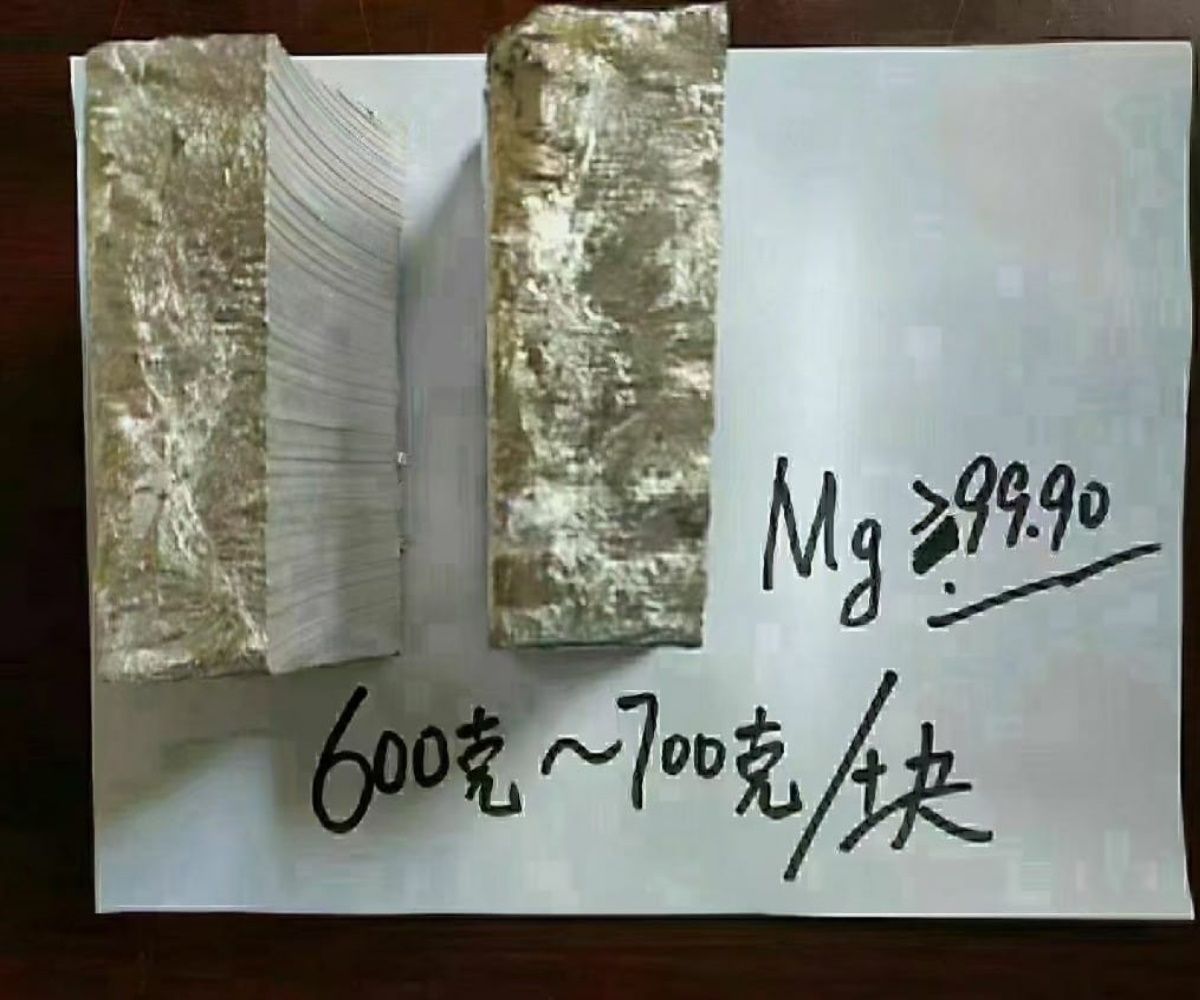 Mg ≥99.90
600克~700克/块